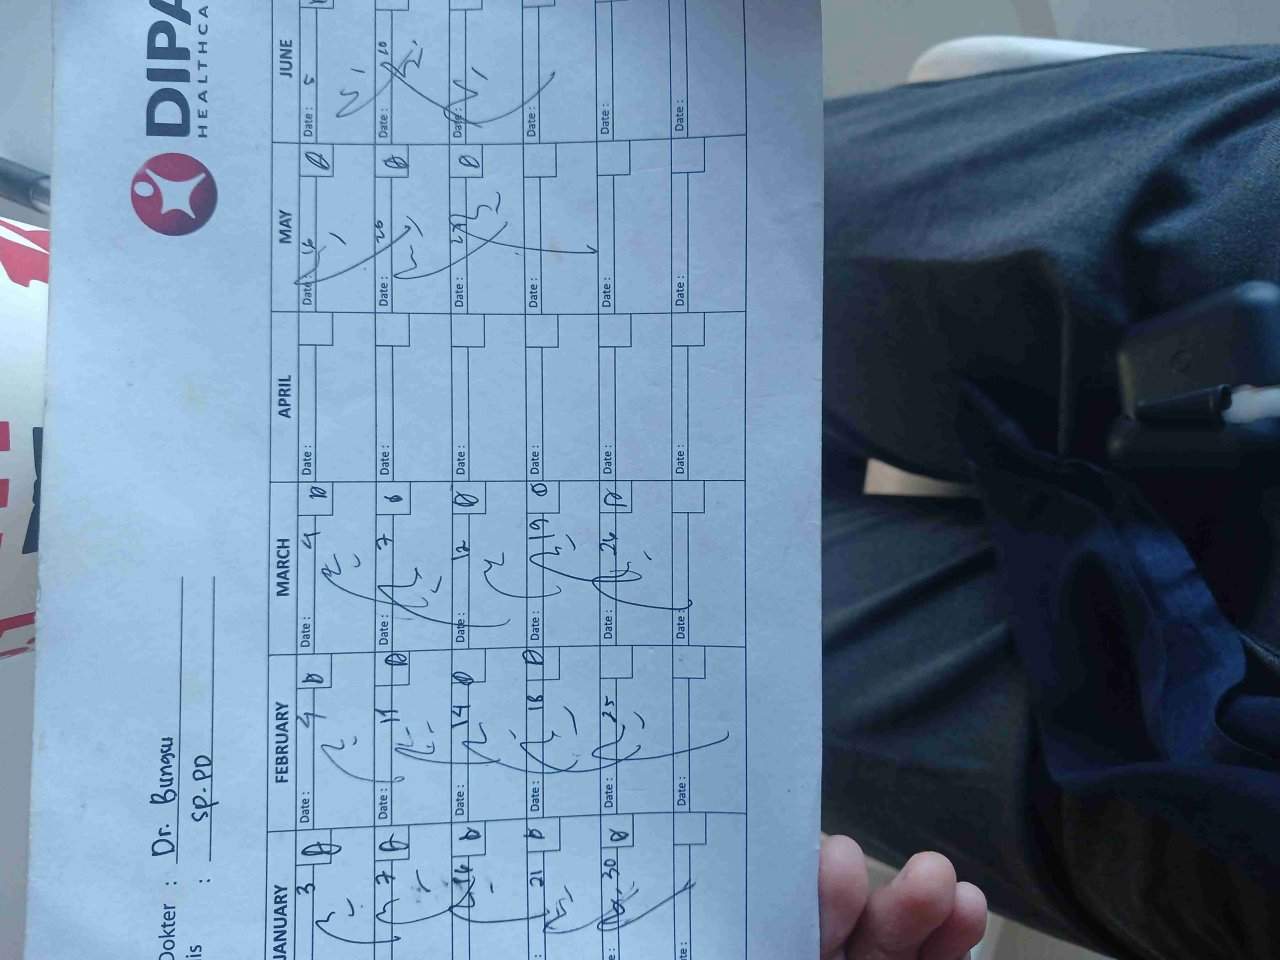 DIPA
HEALTHCA
Dokter : Dr. Bungsu
lis : SP.PD
JANUARY FEBRUARY MARCH APRIL MAY JUNE
3 Date : 4 Date : 4 Date : Date : 16 Date : 5
7 11 Date : 7 Date : Date : 26 10
14 Date : 14 Date : 12 Date : Date : Date :
: 21 Date : 18 Date : 19 Date : Date : Date :
e : 30 Date : 25 Date : 26 Date : Date : Date :
te : Date : Date : Date : Date : Date :